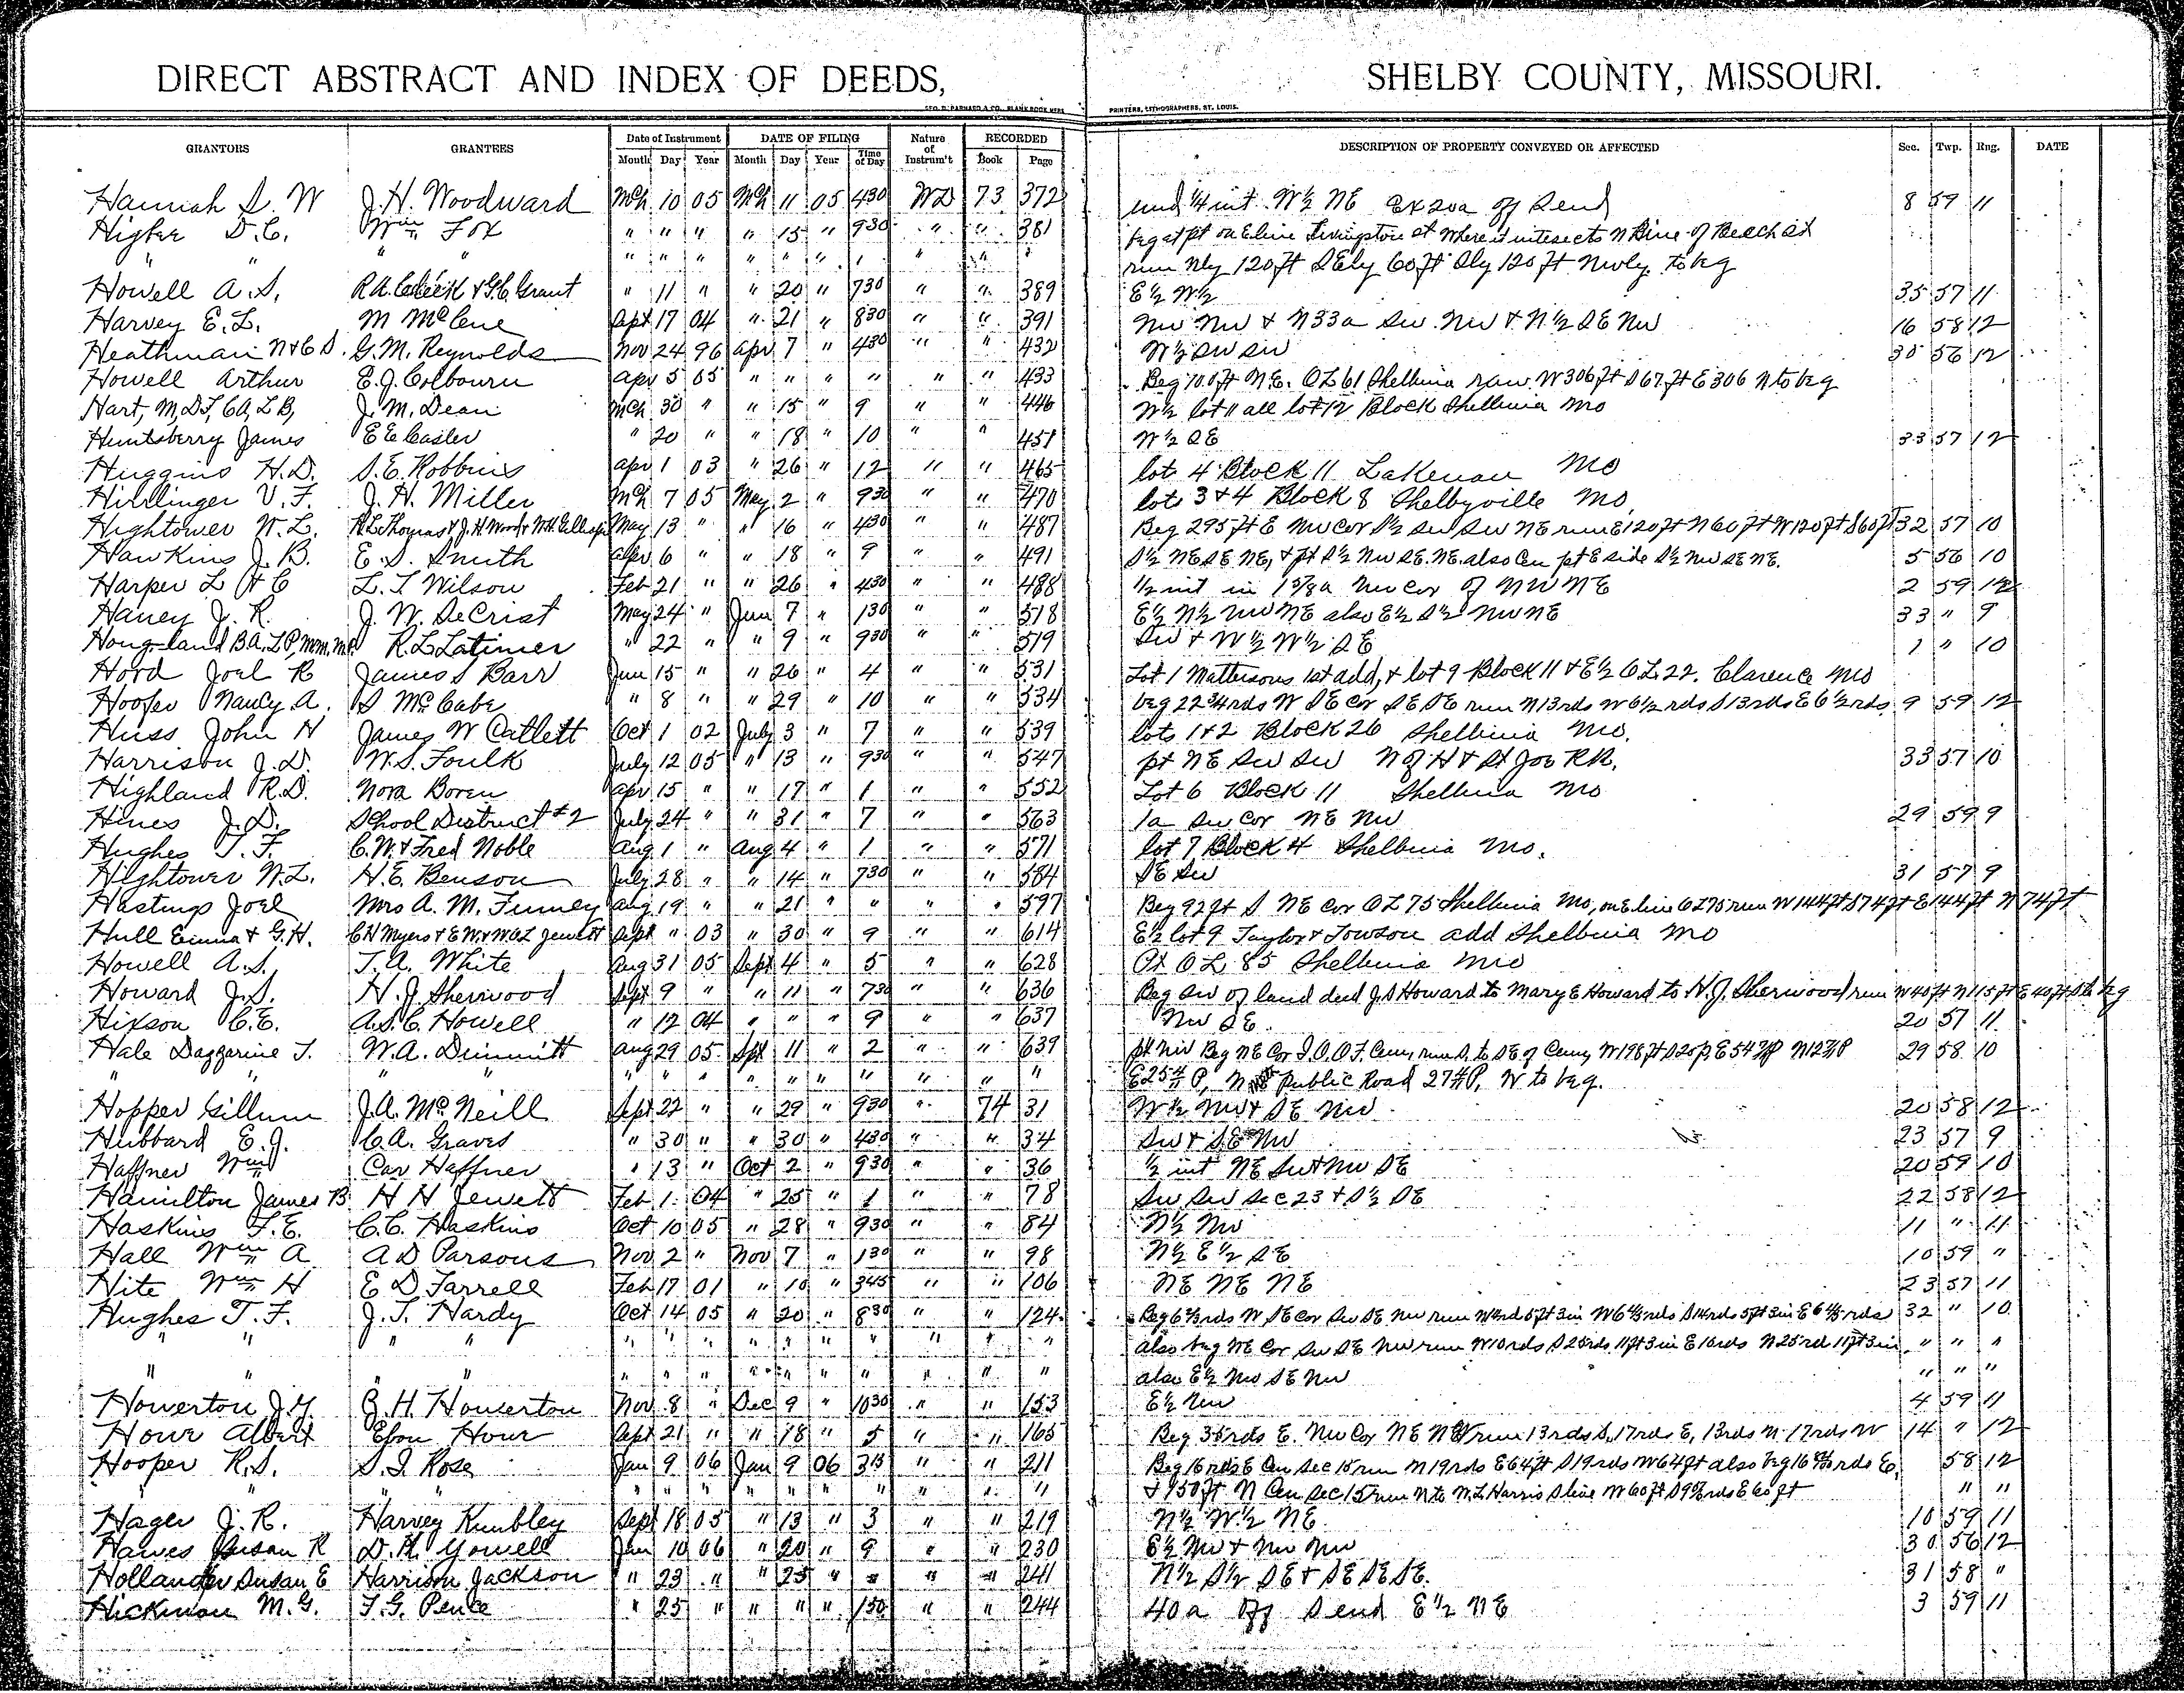 DIRECT ABSTRACT AND INDEX OF DEEDS, SHELBY COUNTY, MISSOURI.
GEO. D. BARNARD & CO. BLANK BOOK MFRS PRINTERS, LITHOGRAPHERS, ST. LOUIS.
GRANTORS GRANTEES Date of Instrument DATE OF FILING Nature of Instrum't RECORDED DESCRIPTION OF PROPERTY CONVEYED OR AFFECTED Sec. Twp. Rng. DATE
Month Day Year Month Day Year Time of Day Book Page
Hannah S. W J. H. Woodward Mch 10 05 Mch 11 05 430 WD 73 372 und 1/4 int W½ NE Ex 20a off S end 8 59 11
Higbee D.C. Wm Fox " " " " 15 " 930 " " 381 beg at pt on E line Livingston st where it intesects N line of Beech st
" " " " " " " " " " " " run Nly 120 ft SEly 60 ft Sly 120 ft Nwly. to beg
Howell A. S. R.A. Cleek & G.C. Grant " 11 " " 20 " 730 " " 389 E½ W½ 35 57 11
Harvey E. L. M McCene Sept 17 04 " 21 " 830 " " 391 NW NW & N33a SW NW & N½ SE NW 16 58 12
Heathman N & C S. G. M. Reynolds Nov 24 96 Apr 7 " 430 " " 432 W½ SW SW 30 56 12
Howell Arthur E. J. Colbourn Apr 5 05 " " " " " " 433 Beg 100 ft N.E. OL 61 Shelbina run W 306 ft S 67 ft E 306 N to beg
Hart, M, D J, C A, L B, J. M. Dean Mch 30 " " 15 " 9 " " 446 W½ lot 11 all lot 12 Block Shelbina Mo
Huntsberry James E E Easler " 20 " " 18 " 10 " " 451 W½ SE 33 57 12
Huggins H. D. S. E. Robbins Apr 1 03 " 26 " 12 " " 465 lot 4 Block 11 Lakenan Mo
Hirrlinger V. F. J. H. Miller Mch 7 05 May 2 " 930 " " 470 lots 3 & 4 Block 8 Shelbyville Mo,
Hightower W. L. R L Thomas & J. H. Wood & W.H. Gillespie May 13 " " 16 " 430 " " 487 Beg 295 ft E NW cor S½ SW SW NE run E 120 ft N 60 ft W 120 ft S 60 ft 32 57 10
Hawkins J. B. E. S. Smith Apr 6 " " 18 " 9 " " 491 S½ NE SE NE, & pt S½ NW SE NE also Cen pt E side S½ NW SE NE. 5 56 10
Harper L H C L. T Wilson Feb 21 " " 26 " 430 " " 488 ½ int in 1 5/8 a NW cor of NW NE 2 59 12
Haney J. R. J. W. DeCrist May 24 " Jun 7 " 130 " " 518 E½ N½ NW NE also E½ S½ NW NE 33 " 9
Hougland B A, L P, Mm, R. L Latimer " 22 " " 9 " 930 " " 519 SW & W½ W½ SE 1 " 10
Hord Joel R James S Barr Jun 15 " " 26 " 4 " " 531 Lot 1 Mattersons 1st add, & lot 9 Block 11 & E½ O L 22. Clarence Mo
Hooper Nancy A. S McCabe " 8 " " 29 " 10 " " 534 beg 22 3/4 rds W SE Cor SE SE run N 13 rds W 6½ rds S 13 rds E 6½ rds 9 59 12
Huss John H James W Catlett Oct 1 02 July 3 " 7 " " 539 lots 1 & 2 Block 26 Shelbina Mo.
Harrison J. D. W. S. Foulk July 12 05 " 13 " 930 " " 547 pt NE SW SW N of H & St Joe RR, 33 57 10
Highland R. D. Nora Boren Apr 15 " " 17 " 1 " " 552 Lot 6 Block 11 Shelbina Mo
Hines J. D. School District #2 July 24 " " 31 " 7 " " 563 1a SW cor NE NW 29 59 9
Hughes T. F. C. W. & Fred Noble Aug 1 " Aug 4 " 1 " " 571 lot 7 Block 4 Shelbina Mo.
Hightower W. L. H. E. Benson July 28 " " 14 " 730 " " 584 SE SW 31 57 9
Hastings Joel Mrs A. M. Finney Aug 19 " " 21 " " " " 597 Beg 92 ft S NE cor OL 75 Shelbina Mo, on E line OL 75 run W 144 ft S 74 ft E 144 ft N 74 ft
Hull Emma & G. H. C. H Myers & E. W. & W.O.L Jewett Sept " 03 " 30 " 9 " " 614 E½ lot 9 Taylor & Towson add Shelbina Mo
Howell A. S. T. A. White Aug 31 05 Sept 4 " 5 " " 628 Pt O L 85 Shelbina Mo
Howard J. S. H. J Sherwood Sept 9 " " 11 " 730 " " 636 Beg SW of land deed J. S Howard to Mary E Howard to H. J. Sherwood run W 40 ft N 115 ft E 40 ft S to beg
Hixson C. E. A. S. C. Howell " 12 04 " " " 9 " " 637 NW SE. 20 57 11
Hale Dazzarine T. W. A. Dimmitt Aug 29 05 Spt 11 " 2 " " 639 pt NW Beg NE Cor I. O. O. F. Cemy, run S. to SE of Cemy W 198 ft S 20 p, E 54 P N 12 P 29 58 10
" " " " " " " " " " " " " " E 25 P, N Public Road 27 P, W to beg.
Hopper Gillum J. A. McNeill Sept 22 " " 29 " 930 " 74 31 W½ NW & SE NW 20 58 12
Hubbard E. J. C. A. Graves " 30 " " 30 " 430 " " 34 SW & SE NW 23 57 9
Haffner Wm Car Haffner " 13 " Oct 2 " 930 " " 36 ½ int NE SW & NW SE 20 59 10
Hamilton James B H H Jewett Feb 1 04 " 25 " 1 " " 78 SW SW Sec 23 & S½ SE 22 58 12
Haskins F. E. C. C. Haskins Oct 10 05 " 28 " 930 " " 84 N½ NW 11 " 11
Hall Wm A A D Parsons Nov 2 " Nov 7 " 130 " " 98 N½ E½ SE 10 59 "
Hite Wm H E D Farrell Feb 17 01 " 10 " 345 " " 106 NE NE NE 23 57 11
Hughes T. F. J. T. Hardy Oct 14 05 " 20 " 830 " " 124 Beg 6 rds W SE cor SW SE NW run N 14 rd 5 ft 3 in W 6 rds S 14 rds 5 ft 3 in E 6 rds 32 " 10
" " " " " " " " " " " " " " also beg NE Cor SW SE NW run W 10 rds S 25 rds 11 ft 3 in E 10 rds N 25 rd 11 ft 3 in " " "
" " " " " " " " " " " " " " also E½ NW SE NW " " "
Howerton J. Y. B. H. Howerton Nov 8 " Dec 9 " 1030 " " 153 E½ NW 4 59 11
Howe Albert Ebon Howe Sept 21 " " 18 " 5 " " 165 Beg 35 rds E. NW Cor NE run 13 rds S, 17 rds E, 13 rds N 17 rds W 14 " 12
Hooper R. S. S. I. Rose Jan 9 06 Jan 9 06 315 " " 211 Beg 16 rds E Cen Sec 15 run N 19 rds E 64 ft S 19 rds W 64 ft also beg 16 rds E, 58 12
" " " " " " " " " " " " " " & 950 ft N Cen Sec 15 run N to W. L Harris S line W 60 ft S 9 rds E 60 ft " "
Hager J. R. Harvey Kimbley Sept 18 05 " 13 " 3 " " 219 N½ W½ NE 10 59 11
Hawes Susan R D. H. Yowell Jan 10 06 " 20 " 9 " " 230 E½ NW & NW NW 30 56 12
Hollander Susan E Harrison Jackson " 23 " " 25 " " " " 241 N½ S½ SE & SE SE SE. 31 58 "
Hickman M. G. F. G. Pence " 25 " " " " 130 " " 244 40 a off S end E½ NE 3 59 11